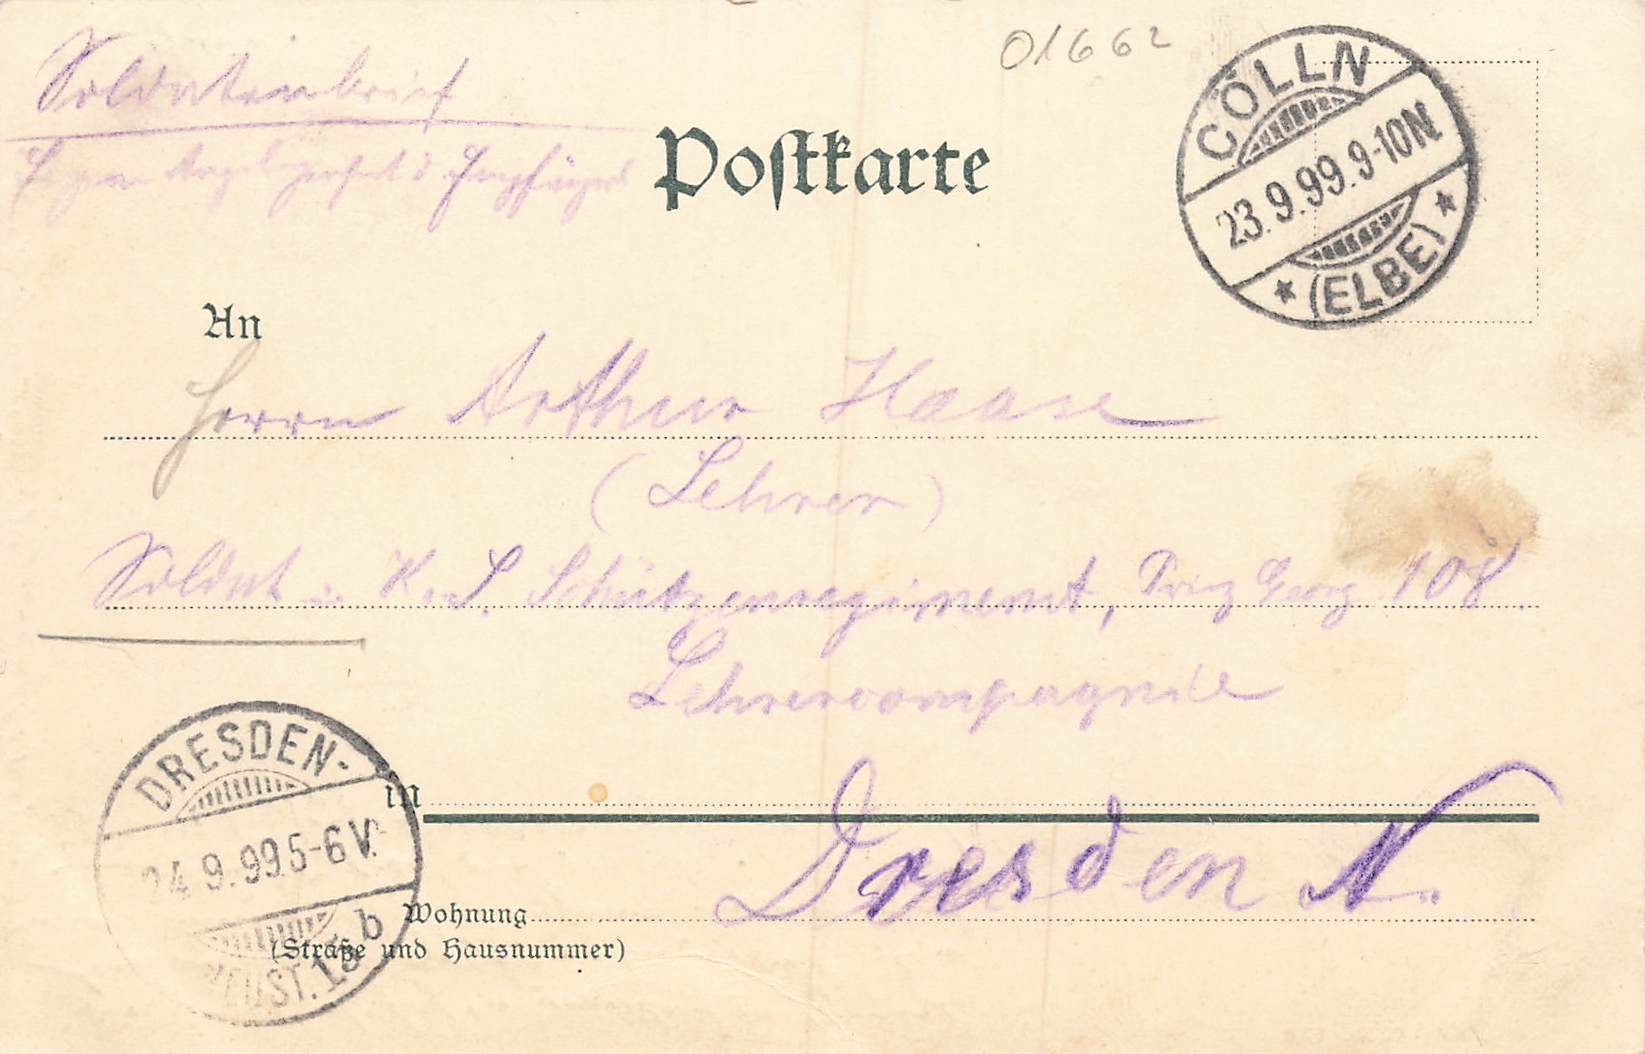 01662
Soldatenbrief
Eigene Angelegenheit d. Empfängers
Postkarte
CÖLLN
23.9.99.9-10N
* (ELBE) *
An
Herrn Arthur Haase
(Lehrer)
Soldat in K. S. Schützenregiment, Prinz Georg 108.
Lehrercompagnie
in
Dresden N.
DRESDEN-
24.9.99.5-6V.
NEUST. 15 b
Wohnung
(Straße und Hausnummer)